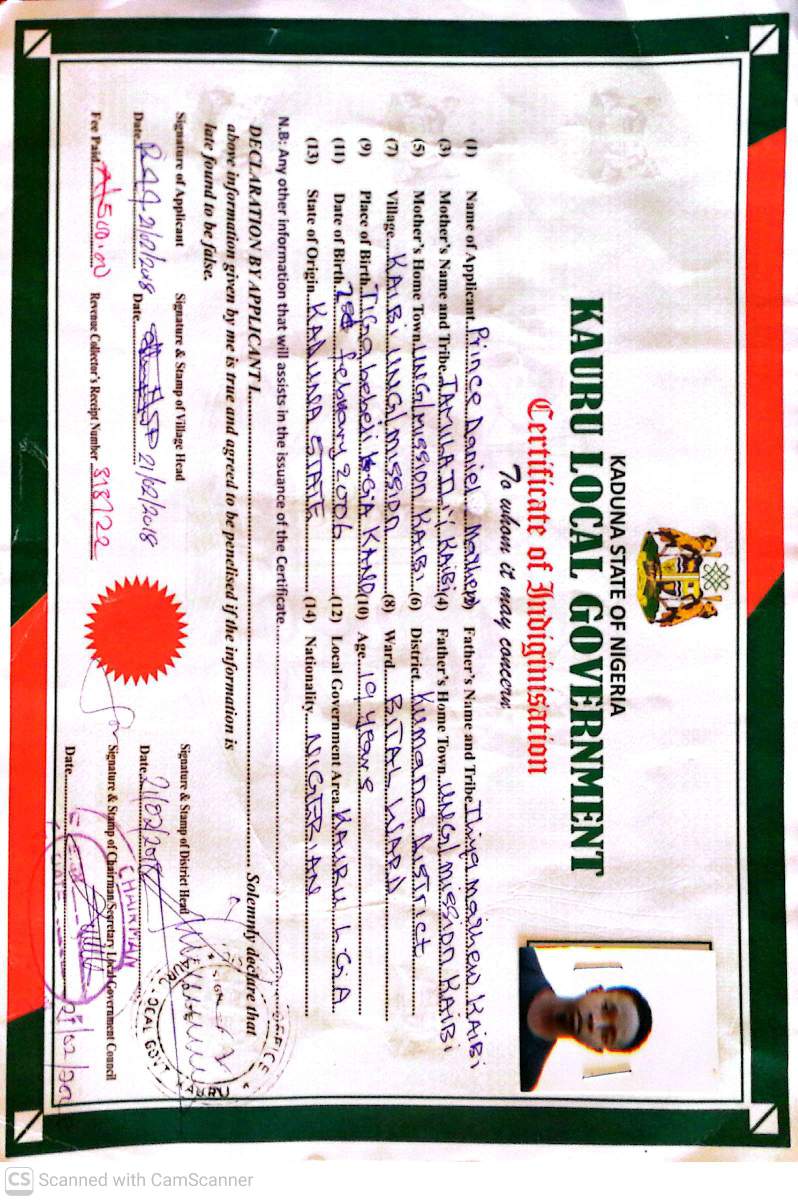 KADUNA STATE OF NIGERIA
KAURU LOCAL GOVERNMENT
Certificate of Indiginisation
To whom it may concern
(1) Name of Applicant Prince Daniel Mathew (2) Father's Name and Tribe Iliya Mathew KAIBi
(3) Mother's Name and Tribe (4) Father's Home Town UNG/mission KAIBi
(5) Mother's Home Town UNG/mission KAIBi (6) District Kumana District
(7) Village KAIBi UNG/mission (8) Ward BITAL WARD
(9) Place of Birth KANO (10) Age 19 years
(11) Date of Birth february 2006 (12) Local Government Area KAURU L.G.A
(13) State of Origin KADUNA STATE (14) Nationality NIGERIAN
N.B: Any other information that will assists in the issuance of the Certificate
DECLARATION BY APPLICANT I Solemnly declare that
above information given by me is true and agreed to be penelised if the information is
late found to be false.
Signature of Applicant Signature & Stamp of Village Head Signature & Stamp of District Head
Date 21/02/2018 Date 21/02/2018 Date 21/02/2018
Fee Paid ₦500.00 Revenue Collector's Receipt Number 818722
Signature & Stamp of Chairman/Secretary Local Government Council
Date
CHAIRMAN
OFFICE
LOCAL GOVT KAURU
CS Scanned with CamScanner